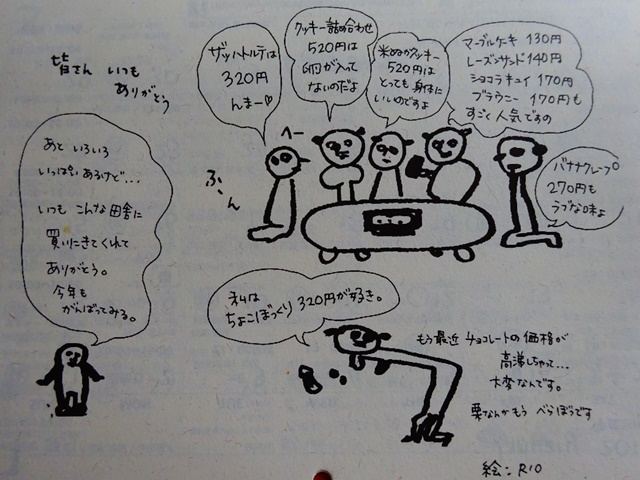 皆さん いつも
ありがとう
ザッハトルテは
320円
んまー♡
クッキー詰め合わせ
520円は
卵が入って
ないのだよ
米ぬかクッキー
520円は
とっても身体に
いいのですよ
マーブルケーキ 130円
レーズンサンド 140円
ショコラキュイ 170円
ブラウニー 170円も
すごく人気ですの
へー
ふーん
バナナクレープ
270円も
ラブな味よ
あと いろいろ
いっぱい あるけど…
いつも こんな田舎に
買いにきてくれて
ありがとう。
今年も
がんばってみる。
私は
ちょこぼっくり 320円が好き。
もう最近 チョコレートの価格が
高沸しちゃって…
大変なんです。
栗なんかもう べらぼうです
絵:RIO